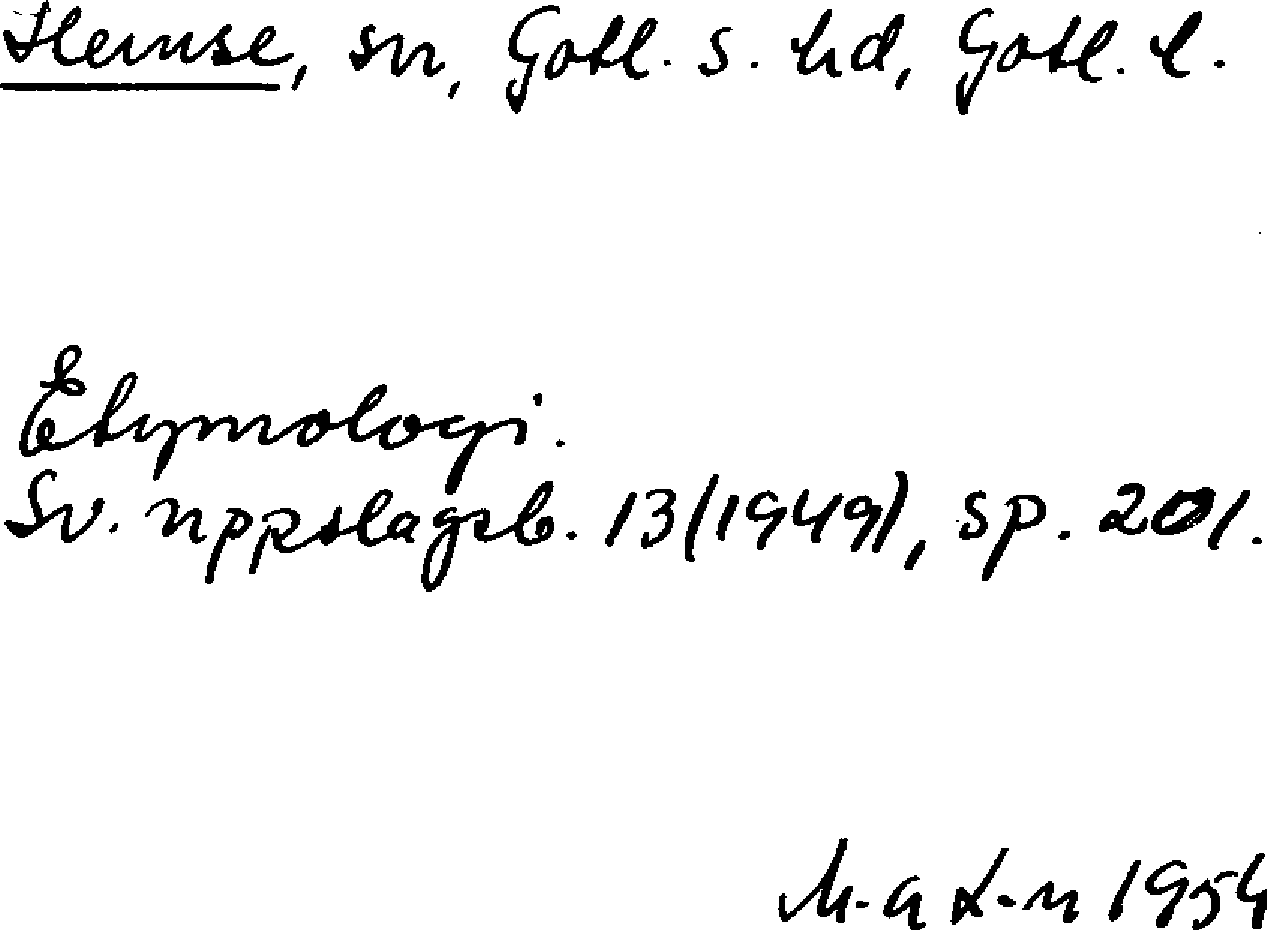 Hemse, sn, Gotl. s. hd, Gotl. l.
Etymologi.
Sv. uppslagsb. 13 (1949), sp. 201.
M-a L-n 1954